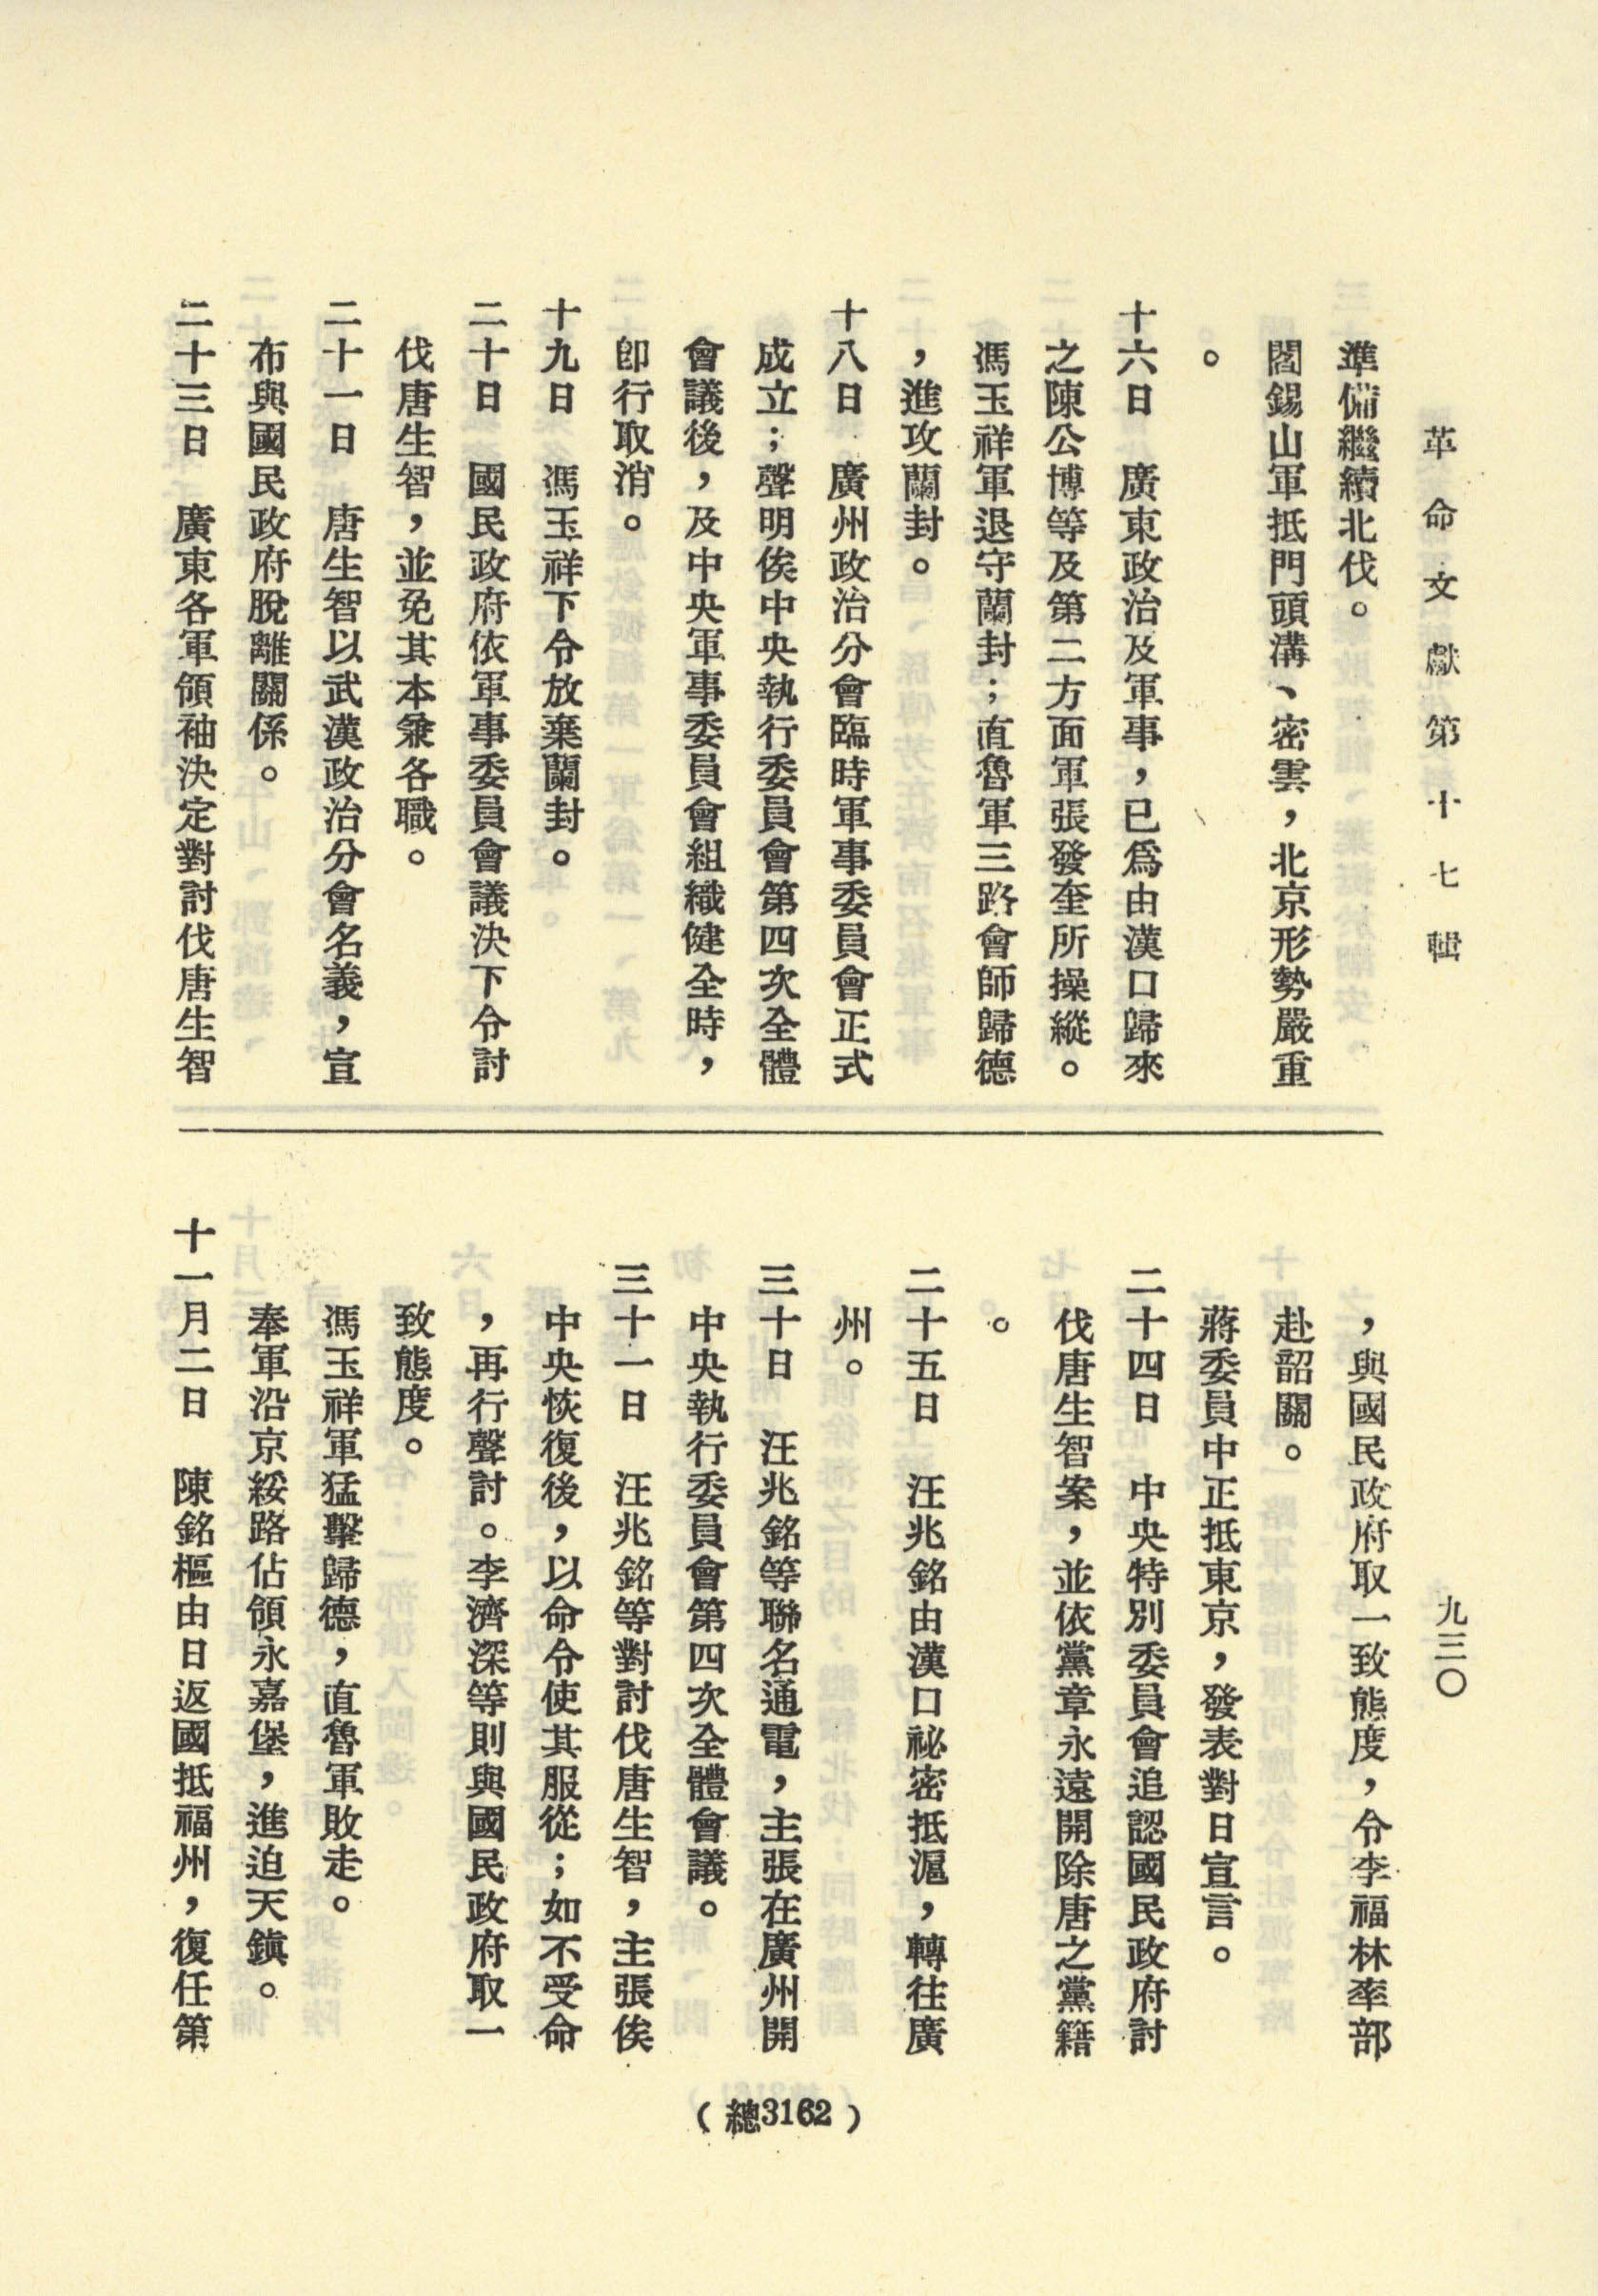 革命文獻第十七輯
九三〇
準備繼續北伐。
閻錫山軍抵門頭溝、密雲，北京形勢嚴重
。
十六日　廣東政治及軍事，已爲由漢口歸來
之陳公博等及第二方面軍張發奎所操縱。
馮玉祥軍退守蘭封；直魯軍三路會師歸德
，進攻蘭封。
十八日　廣州政治分會臨時軍事委員會正式
成立；聲明俟中央執行委員會第四次全體
會議後，及中央軍事委員會組織健全時，
卽行取消。
十九日　馮玉祥下令放棄蘭封。
二十日　國民政府依軍事委員會議決下令討
伐唐生智，並免其本兼各職。
二十一日　唐生智以武漢政治分會名義，宣
布與國民政府脫離關係。
二十三日　廣東各軍領袖決定對討伐唐生智
，與國民政府取一致態度，令李福林率部
赴韶關。
蔣委員中正抵東京，發表對日宣言。
二十四日　中央特別委員會追認國民政府討
伐唐生智案，並依黨章永遠開除唐之黨籍
。
二十五日　汪兆銘由漢口祕密抵滬，轉往廣
州。
三十日　汪兆銘等聯名通電，主張在廣州開
中央執行委員會第四次全體會議。
三十一日　汪兆銘等對討伐唐生智，主張俟
中央恢復後，以命令使其服從；如不受命
，再行聲討。李濟深等則與國民政府取一
致態度。
馮玉祥軍猛擊歸德，直魯軍敗走。
奉軍沿京綏路佔領永嘉堡，進迫天鎮。
十一月二日　陳銘樞由日返國抵福州，復任第
（總3162）